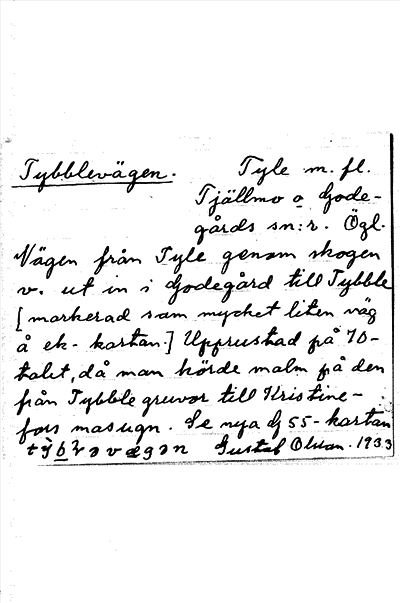 Tybblevägen. Tyle m. fl.
Tjällmo o Gode-
gårds sn:r. Ögl.
Vägen från Tyle genom skogen
v. ut in i Godegård till Tybble
[markerad som mycket liten väg
å ek-kartan.] Upprustad på 70-
talet, då man körde malm på den
från Tybble gruvor till Kristine-
fors masugn. Se nya G 55-kartan
Gustaf Olson. 1933